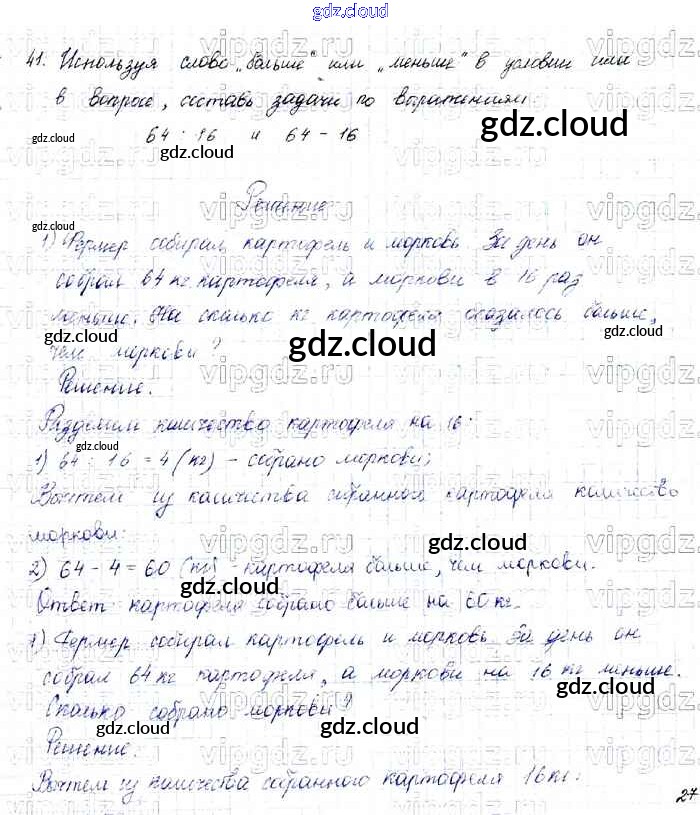 gdz.cloud
41. Используя слово „больше" или „меньше" в условии или
в вопросе, составь задачи по выражениям
64 : 16 и 64 - 16
Решение
1) Фермер собирал картофель и морковь. За день он
собрал 64 кг картофеля, а моркови в 16 раз
меньше. На сколько кг картофеля оказалось больше,
чем моркови?
Решение.
Разделим количество картофеля на 16:
1) 64 : 16 = 4 (кг) - собрано моркови;
Вычтем из количества собранного картофеля количество
моркови:
2) 64 - 4 = 60 (кг) - картофеля больше, чем моркови.
Ответ картофеля собрано больше на 60 кг.
1) Фермер собирал картофель и морковь. За день он
собрал 64 кг картофеля, а моркови на 16 кг меньше.
Сколько собрано моркови?
Решение.
Вычтем из количества собранного картофеля 16 кг:
27